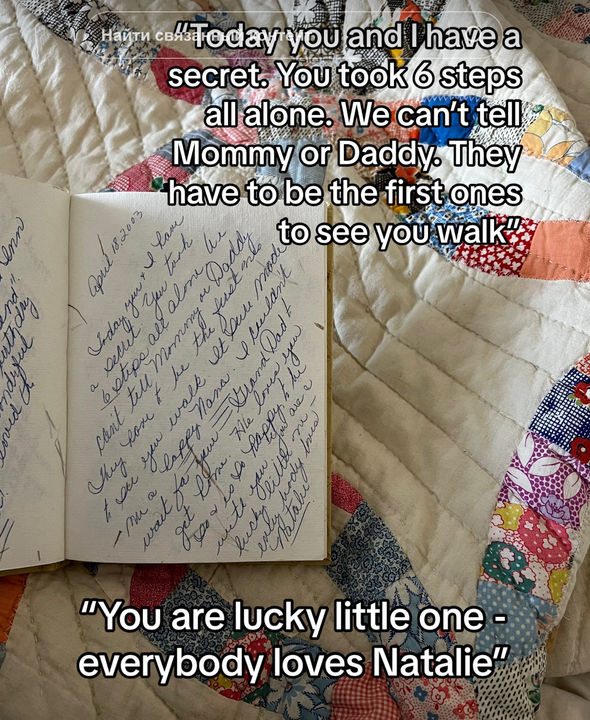 Найти связанный контент
“Today you and I have a
secret. You took 6 steps
all alone. We can’t tell
Mommy or Daddy. They
have to be the first ones
to see you walk”
April 8 2003
Today you & I have
a secret. You took
6 steps all alone. We
can't tell Mommy or Daddy
They have to be the first ones
to see you walk. It sure made
me a happy Nana. I couldn't
wait for your Grand Dad to
get home. He loves you
too & is so happy to be
with you. You are a
lucky little one -
everybody loves
Natalie
“You are lucky little one -
everybody loves Natalie”